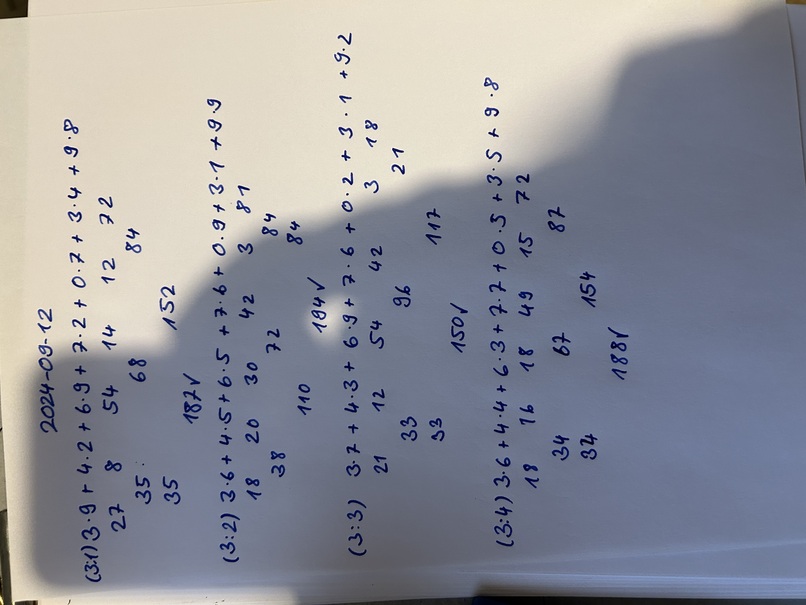 2024-09-12
(3:1) 3·9 + 4·2 + 6·9 + 7·2 + 0·7 + 3·4 + 9·8
27 8 54 14 12 72
35: 68 84
35 152
187✓
(3:2) 3·6 + 4·5 + 6·5 + 7·6 + 0·9 + 3·1 + 9·9
18 20 30 42 3 81
38 72 84
110 84
194✓
(3:3) 3·7 + 4·3 + 6·9 + 7·6 + 0·2 + 3·1 + 9·2
21 12 54 42 3 18
33 96 21
33 117
150✓
(3:4) 3·6 + 4·4 + 6·3 + 7·7 + 0·5 + 3·5 + 9·8
18 16 18 49 15 72
34 67 87
34 154
188✓